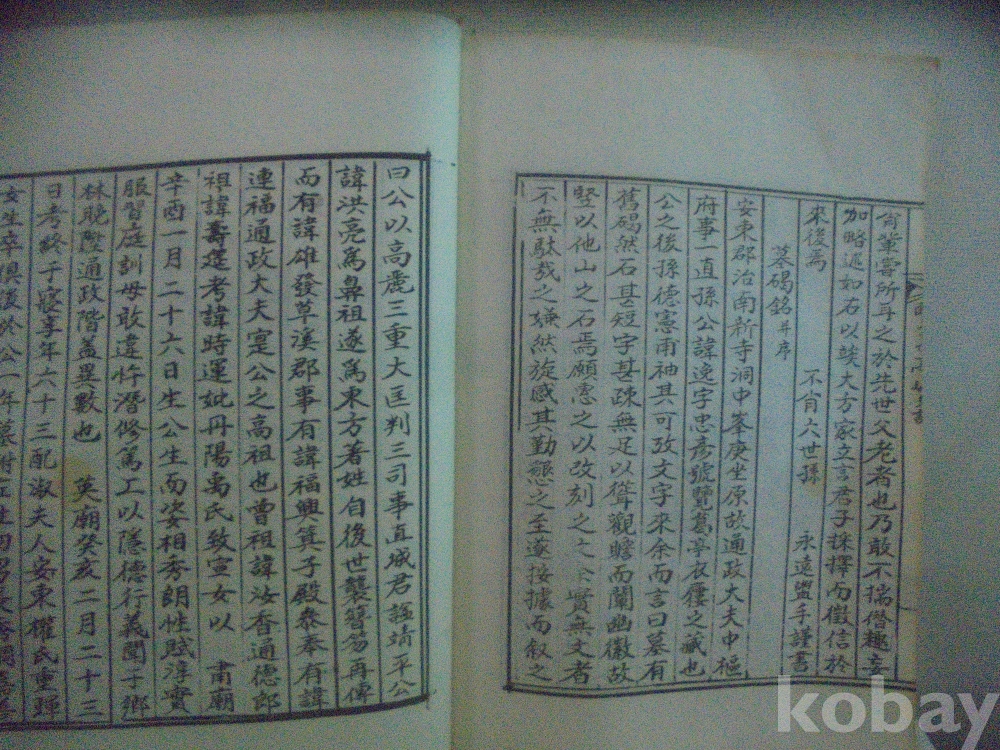 嘗聞所耳之於先世父老者也乃敢不揣僭趣妄
加略述如右以竢大方家立言君子採擇而徵信於
來後焉
不肖六世孫 永遠盥手謹書
墓碣銘幷序
安東郡治南新寺洞中峯庚坐原故通政大夫中樞
府事一直孫公諱逸字忠彦號覽舊亭衣履之藏也
公之後孫德憲甫袖其可攷文字來余而言曰墓有
舊碣然石甚短字甚疎無足以聳觀瞻而闡幽徽故
竪以他山之石焉願惠之以改刻之文 實無文者
不無馱哉之嫌然旋感其勤懇之至遂按據而叙之
曰公以高麗三重大匡判三司事直城君諡靖平公
諱洪亮爲鼻祖遂爲東方著姓自後世襲簪笏再傳
而有諱雄發草溪郡事有諱福興箕子殿叅奉有諱
連福通政大夫寔公之高祖也曾祖諱汝香通德郎
祖諱壽 考諱時運妣丹陽禹氏致宣女以 肅廟
辛酉一月二十六日生公生而姿相秀朗性賦淳實
服習庭訓毋敢違忤潛修篤工以隱德行義聞于鄉
林晩陞通政階盖異數也 英廟癸亥二月二十三
日考終于寢享年六十三配淑夫人安東權氏重
女生卒俱後於公一年墓祔左生四男長